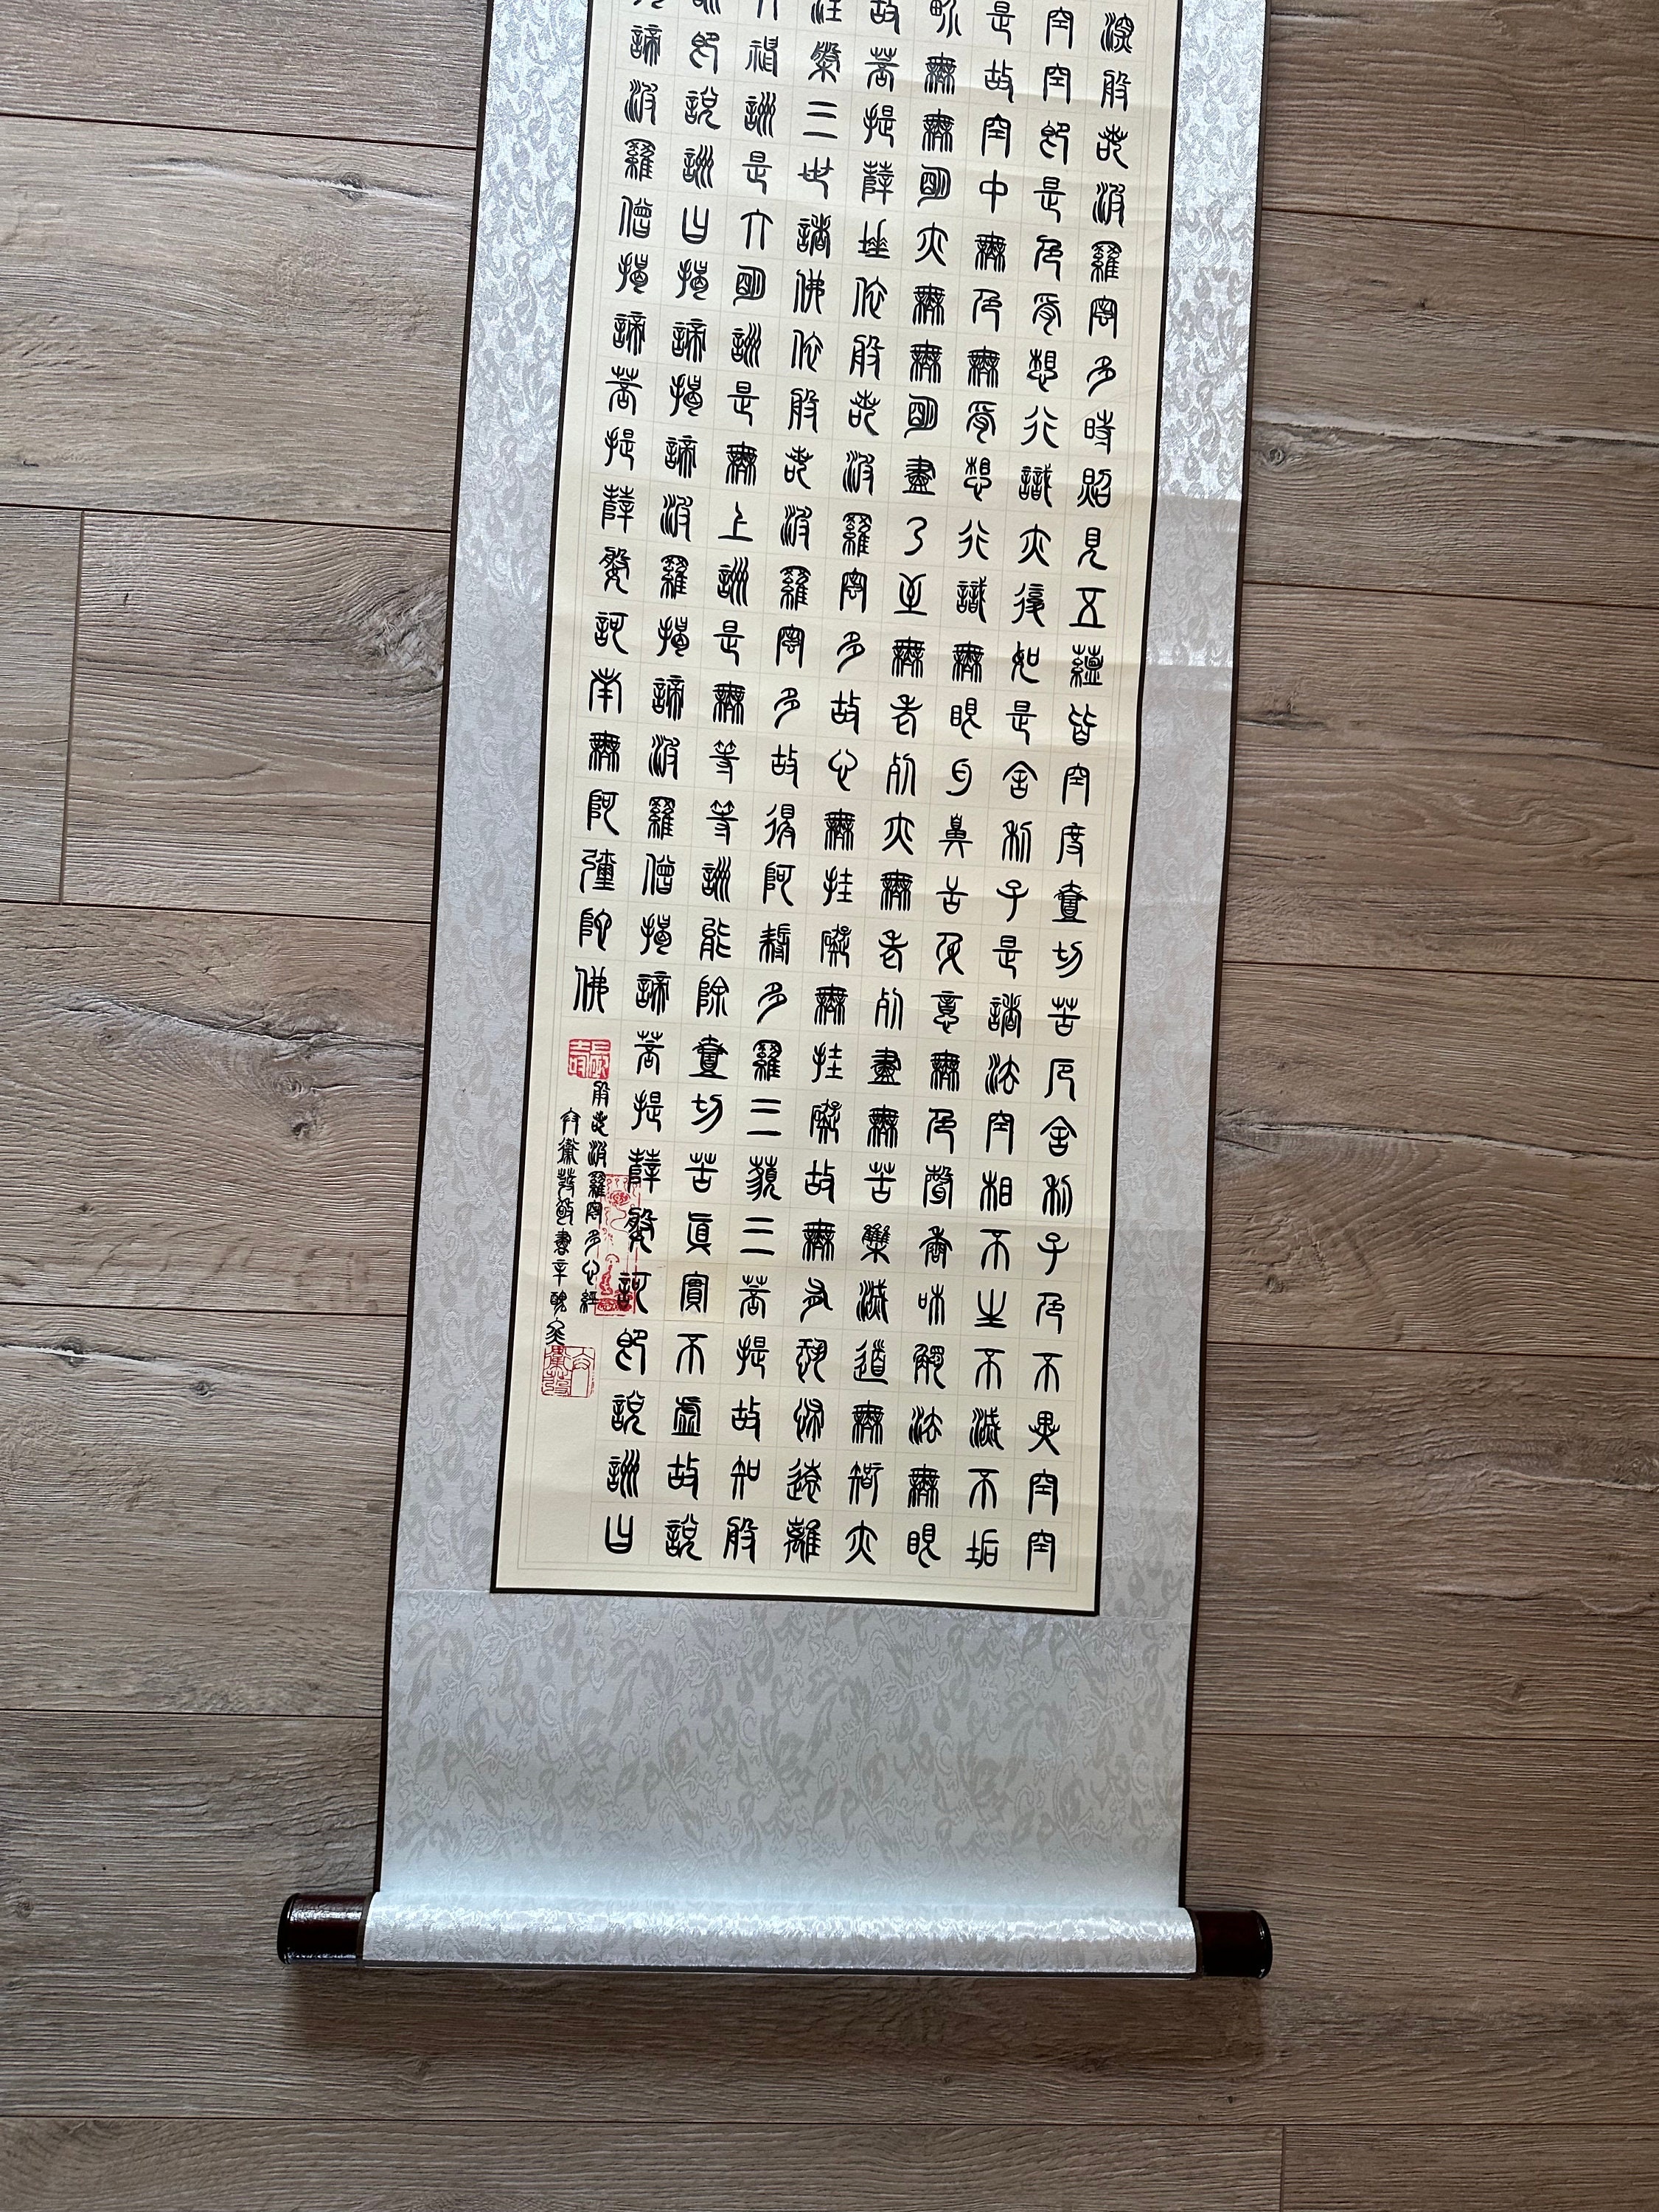 深般若波羅蜜多時照見五蘊皆空度壹切苦厄舍利子色不異空空
空空即是色受想行識亦復如是舍利子是諸法空相不生不滅不垢
是故空中無色無受想行識無眼耳鼻舌身意無色聲香味觸法無眼
界無無明亦無無明盡乃至無老死亦無老死盡無苦集滅道無智亦
故菩提薩埵依般若波羅蜜多故心無挂礙無挂礙故無有恐怖遠離
涅槃三世諸佛依般若波羅蜜多故得阿耨多羅三藐三菩提故知般
大神詶是大明詶是無上詶是無等等詶能除壹切苦真實不虛故說
詶即說詶曰揭諦揭諦波羅揭諦波羅僧揭諦菩提薩婆訶即說詶曰
諦波羅僧揭諦菩提薩婆訶南無阿彌陀佛
般若波羅蜜多心經
敬書辛醜冬